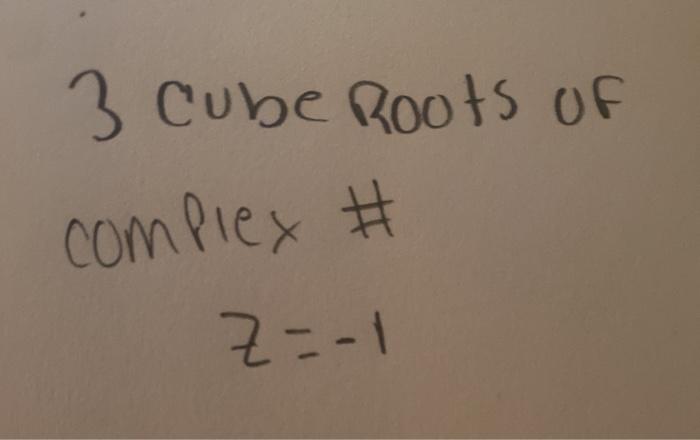 3 cube Roots of
complex #
z = -1